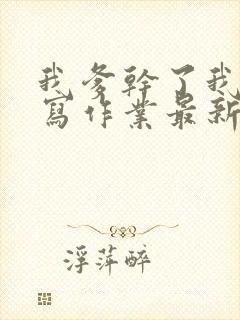 我爹幹了我
寫作業最新
浮萍醉